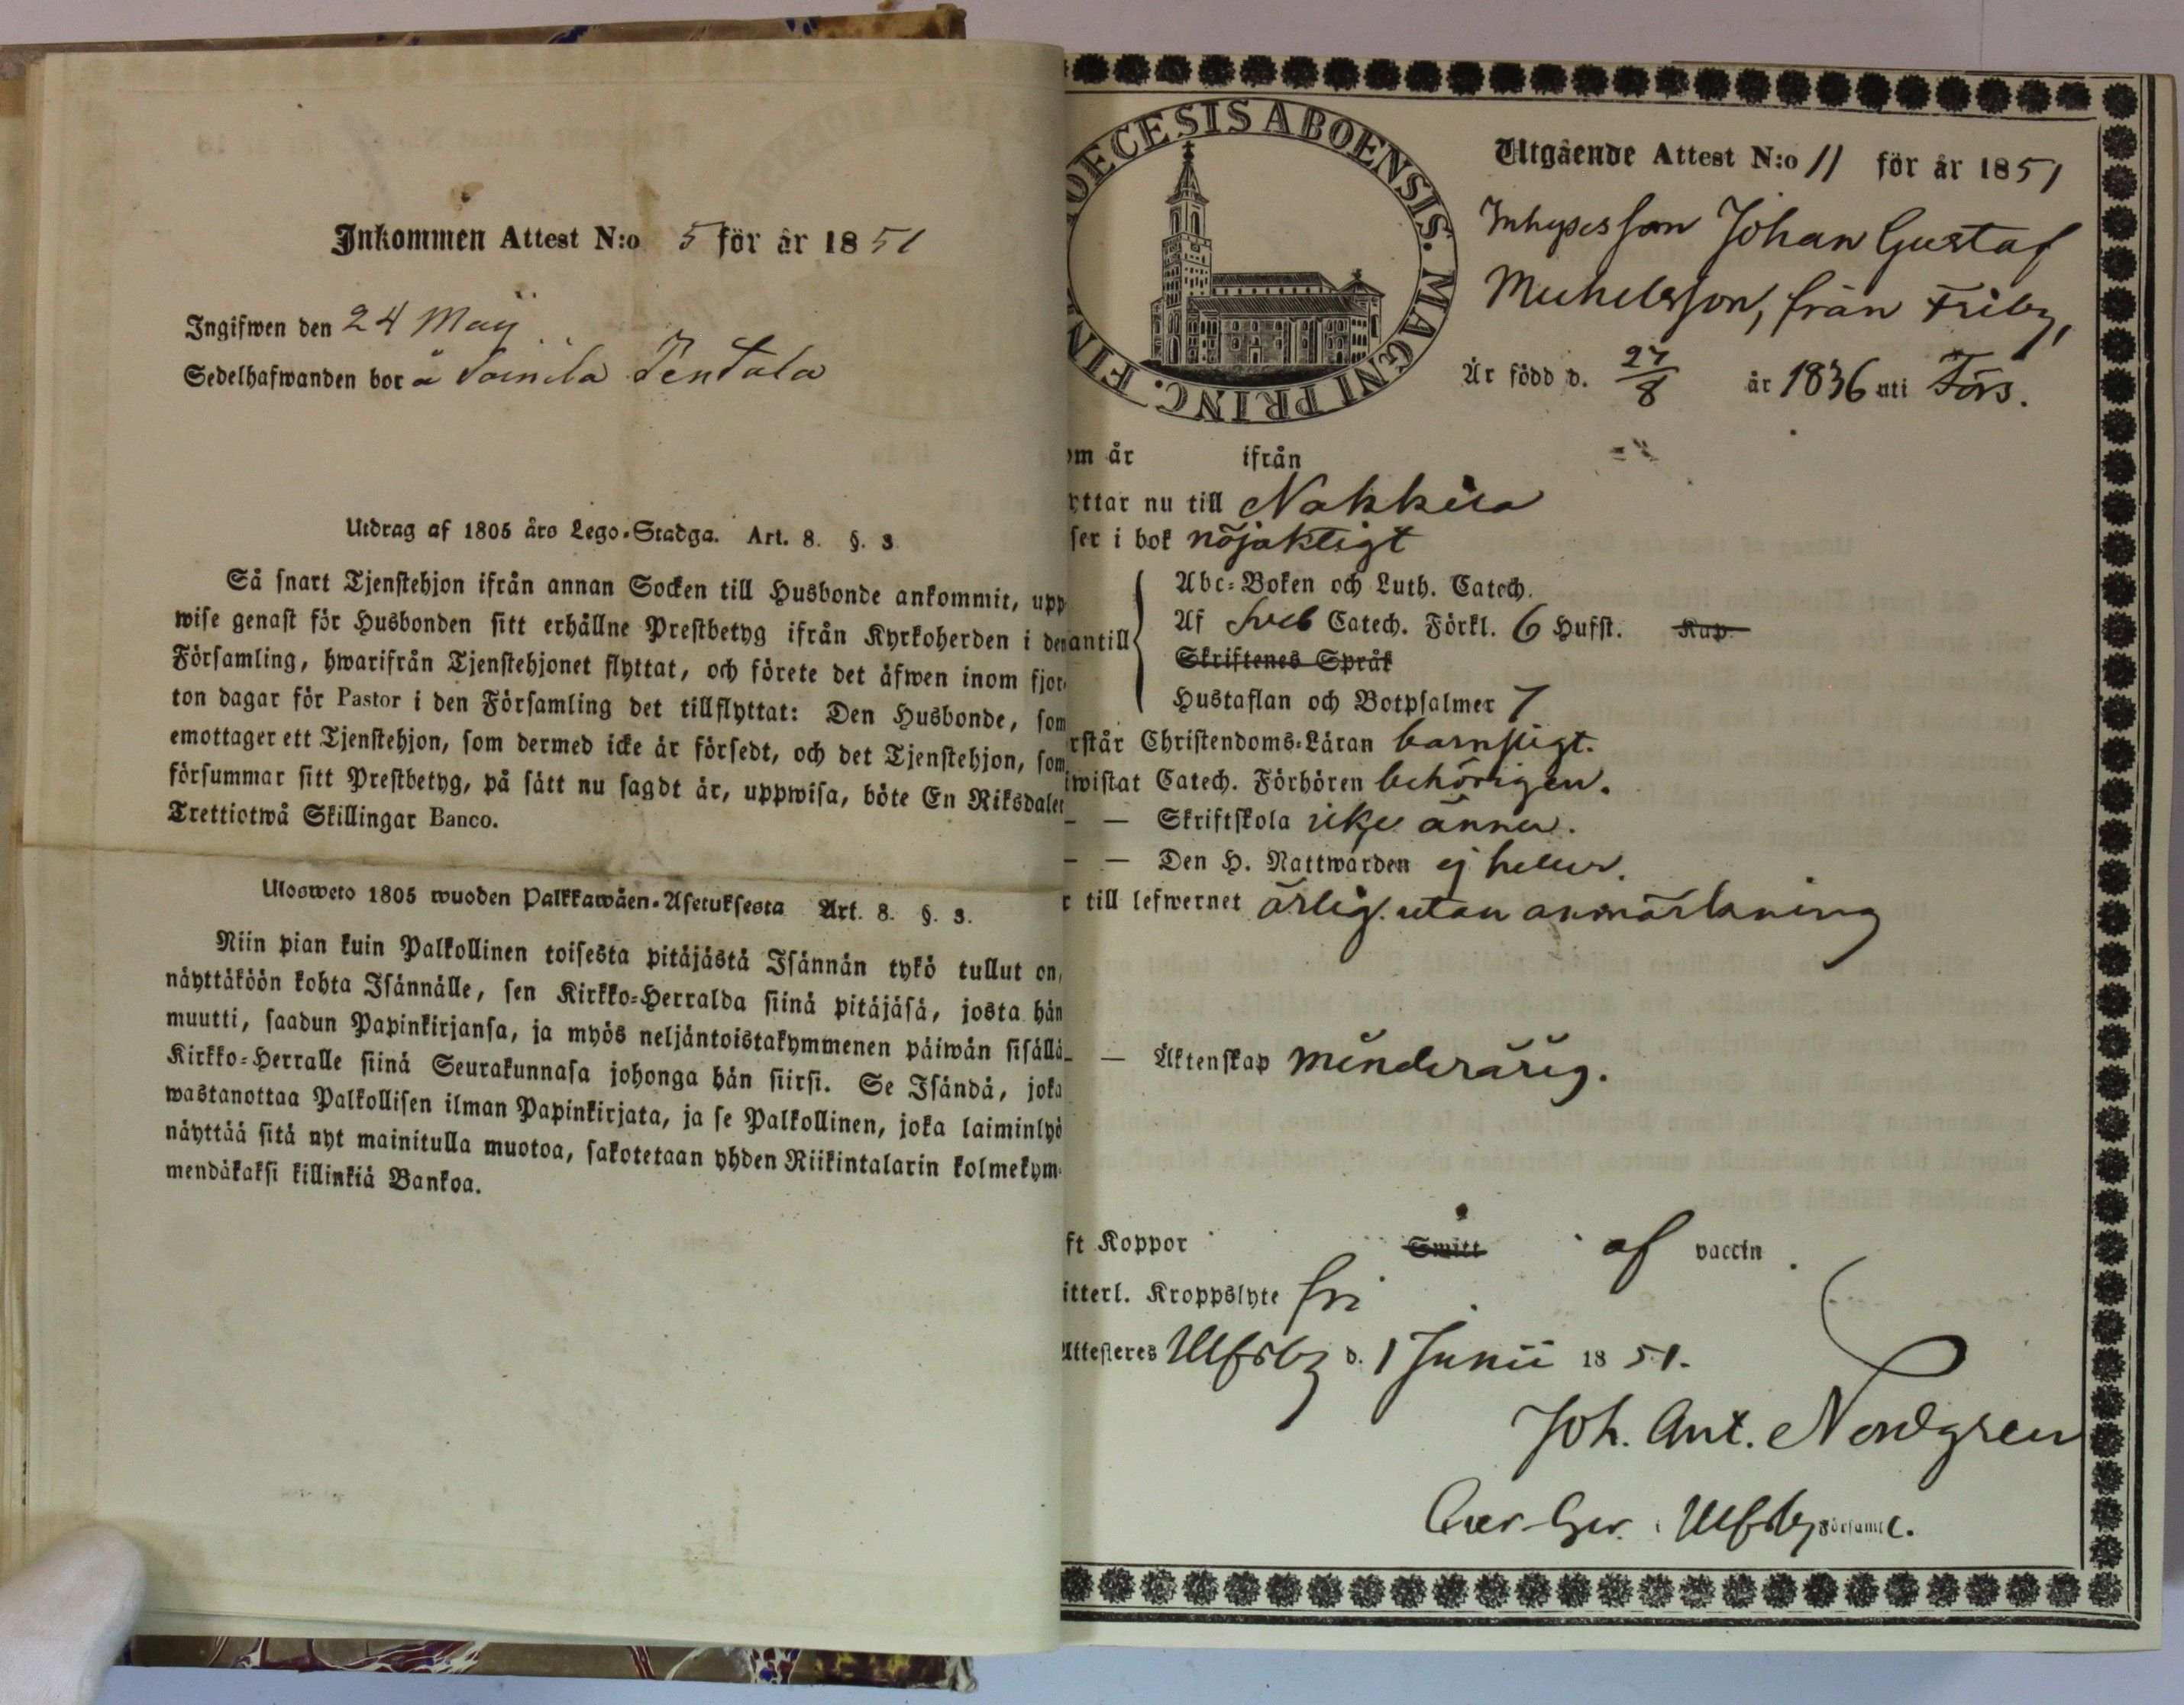 Inkommen Attest N:o 5 för år 1851
Ingifwen den 24 Maij
Sedelhafwanden bor å Soinila Pentala
Utdrag af 1805 års Lego-Stadga. Art. 8. §. 3
Så snart Tjenstehjon ifrån annan Socken till Husbonde ankommit, upp
wise genast för Husbonden sitt erhållne Prestbetyg ifrån Kyrkoherden i den
Församling, hwarifrån Tjenstehjonet flyttat, och förete det äfwen inom fjor-
ton dagar för Pastor i den Församling det tillflyttat: Den Husbonde, som
emottager ett Tjenstehjon, som dermed icke är försedt, och det Tjenstehjon, som
försummar sitt Prestbetyg, på sätt nu sagdt är, uppwisa, böte En Riksdaler
Trettiotwå Skillingar Banco.
Ulosweto 1805 wuoden Palkkawäen-Asetuksesta Art. 8. §. 3.
Niin pian kuin Palkollinen toisesta pitäjästä Isännän tykö tullut on,
näyttäköön kohta Isännälle, sen Kirkko-Herralda siinä pitäjäsä, josta hän
muutti, saadun Papinkirjansa, ja myös neljäntoistakymmenen päiwän sisällä
Kirkko-Herralle siinä Seurakunnasa johonga hän siirsi. Se Isändä, joka
wastanottaa Palkollisen ilman Papinkirjata, ja se Palkollinen, joka laiminlyö
näyttää sitä nyt mainitulla muotoa, sakotetaan yhden Riikintalarin kolmekym-
mendäkaksi killinkiä Bankoa.
OECESIS ABOENSIS. MAGNI PRINC. FIN
Utgående Attest N:o 11 för år 1851
Inhyses son Johan Gustaf
Michelsson, från Friby,
Är född d. 27/8 år 1836 uti Förs.
om år ifrån
yttar nu till Nakkila
ser i bok nöjaktigt
Abc-Boken och Luth. Catech.
antill Af Sveb Catech. Förkl. 6 Hufst. Kap.
Skriftenes Språk
Hustaflan och Botpsalmer 7
rstår Christendoms-Läran barnsligt.
iwistat Catech. Förhören behörigen.
— — Skriftskola icke ännu.
— — Den H. Nattwarden ej heller.
r till lefwernet ärlig. utan anmärkning
— — Äktenskap minderårig.
ft Koppor Smitt af vaccin
itterl. Kroppslyte fri
Attesteres Ulfsby d. 1 Junii 1851.
Joh. Ant. Nordgren
i Ulfsby Församl.